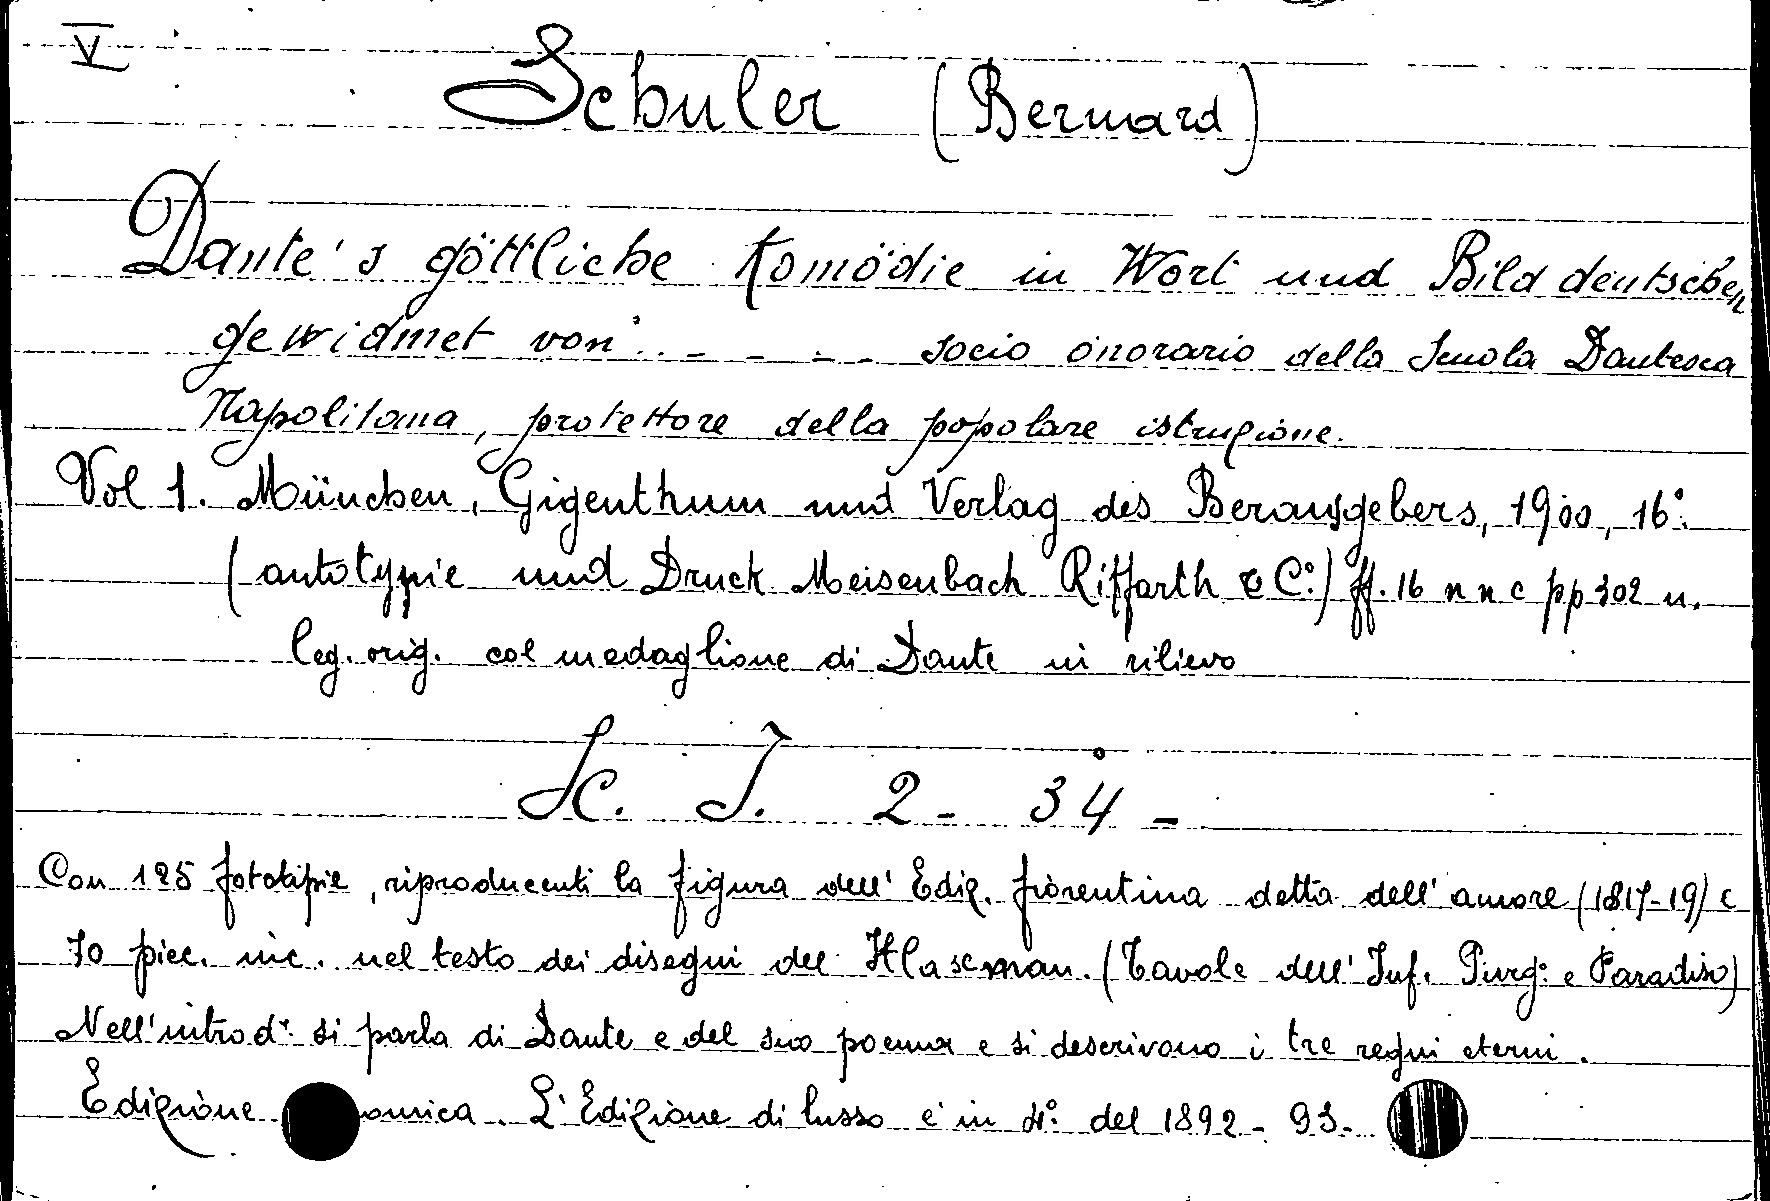 V
Schuler (Bernard)
Dante's göttliche Komödie in Wort und Bild deutschen
gewidmet von . - - - - socio onorario della Scuola Dantesca
Napolitana, protettore della popolare istruzione.
Vol 1. München, Gigenthum und Verlag des Berausgebers, 1900, 16°.
(autotypie und Druck Meisenbach Riffarth & C°.) ff. 16 n n c pp 302 n.
leg. orig. col medaglione di Dante in rilievo
Sc. J. 2 - 34 -
Con 125 fototipie, riproducenti la figura dell' Ediz. fiorentina detta dell' amore (1817-19) e
70 picc. inc. nel testo dei disegni del Hlascman. (Tavole dell' Inf. Purg°. e Paradiso)
Nell' introd. si parla di Dante e del suo poema e si descrivono i tre regni eterni.
Edizione omica. L'Edizione di lusso è in 4°. del 1892 - 93.